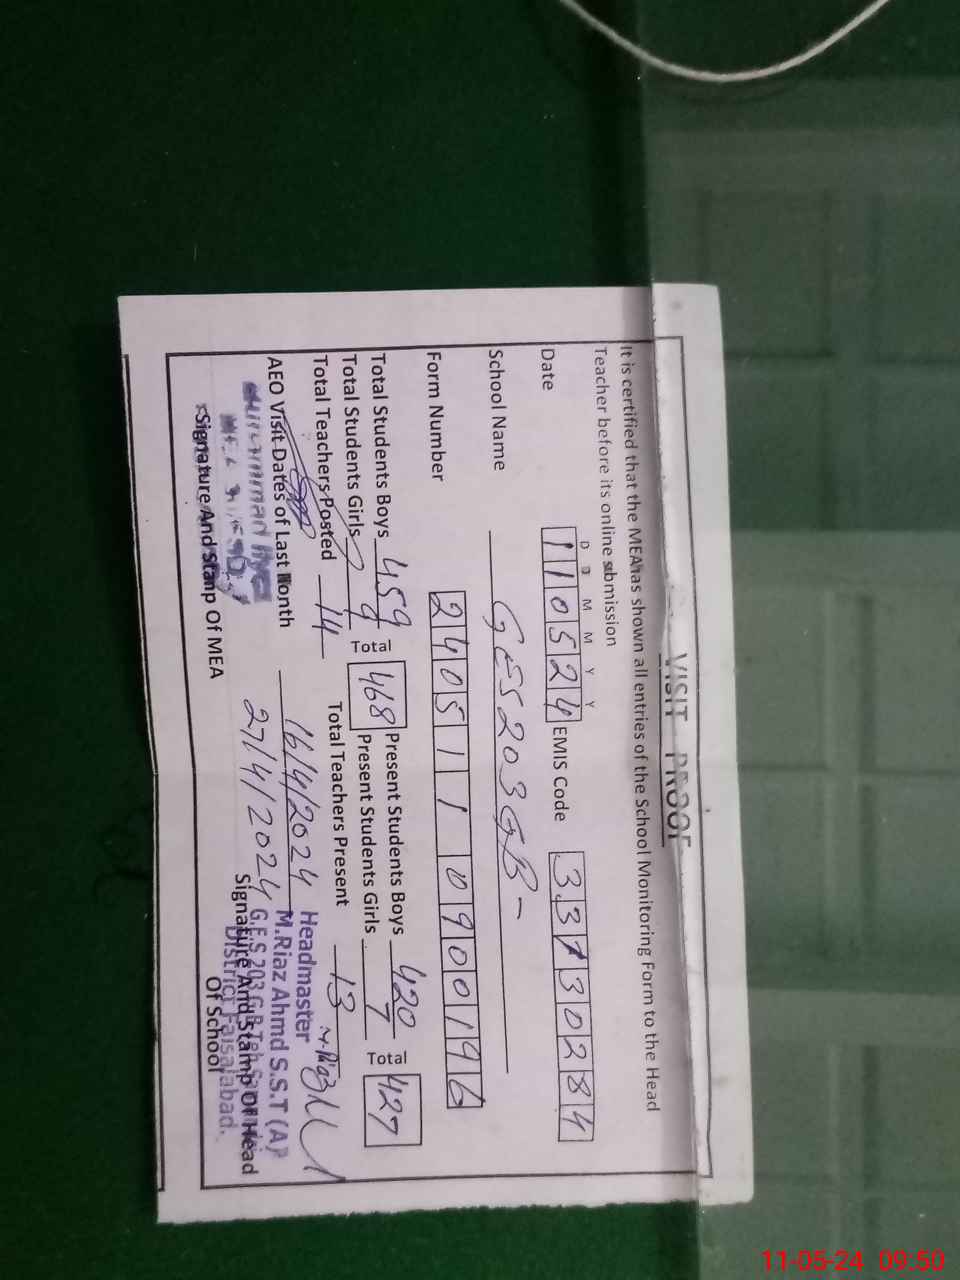 VISIT PROOF
It is certified that the MEA has shown all entries of the School Monitoring Form to the Head
Teacher before its online submission
D D M M Y Y
Date 110524 EMIS Code 33130284
School Name GES 203 GB -
Form Number 2405110900196
Total Students Boys 459 Total 468 Present Students Boys 420 Total 427
Total Students Girls 9 Present Students Girls 7
Total Teachers Posted 14 Total Teachers Present 13
AEO Visit Dates of Last Month 16/4/2024
27/4/2024
Headmaster
M.Riaz Ahmd S.S.T (A)
G.E.S 203 G.B Teh
District Faisalabad.
Signature And Stamp Of MEA
Signature And Stamp Of Head
Of School
11-05-24 09:50